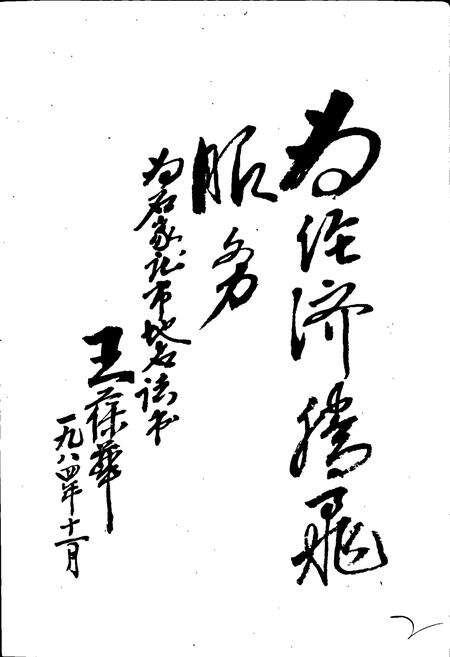 为经济腾飞
服务
为石家庄市地名誌书
王葆華
一九八四年十一月
2